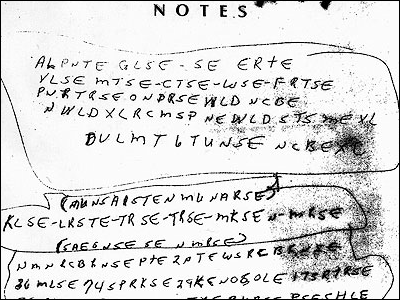 NOTES
ALPNTE GLSE-SE ERTE
VLSE MTSE-CTSE-WSE-FRTSE
PNRTRSE ONDRSE WLD NCBE
NWLDXLRCMSP NEWLD STS ME XL
DULMT 6 TUNSE NCBEXC
(MUNSARSTEN MUNARSE)
KLSE-LRSTE-TRSE-TRSE-MKSEN-MRSE
(SAEGNSE SE N MRSE)
NMNRCBRNSE PTE 2 PTE WSRCBRNSE
36 MLSE 74 SPRKSE 29 KENOSOLE 173 RTRSE